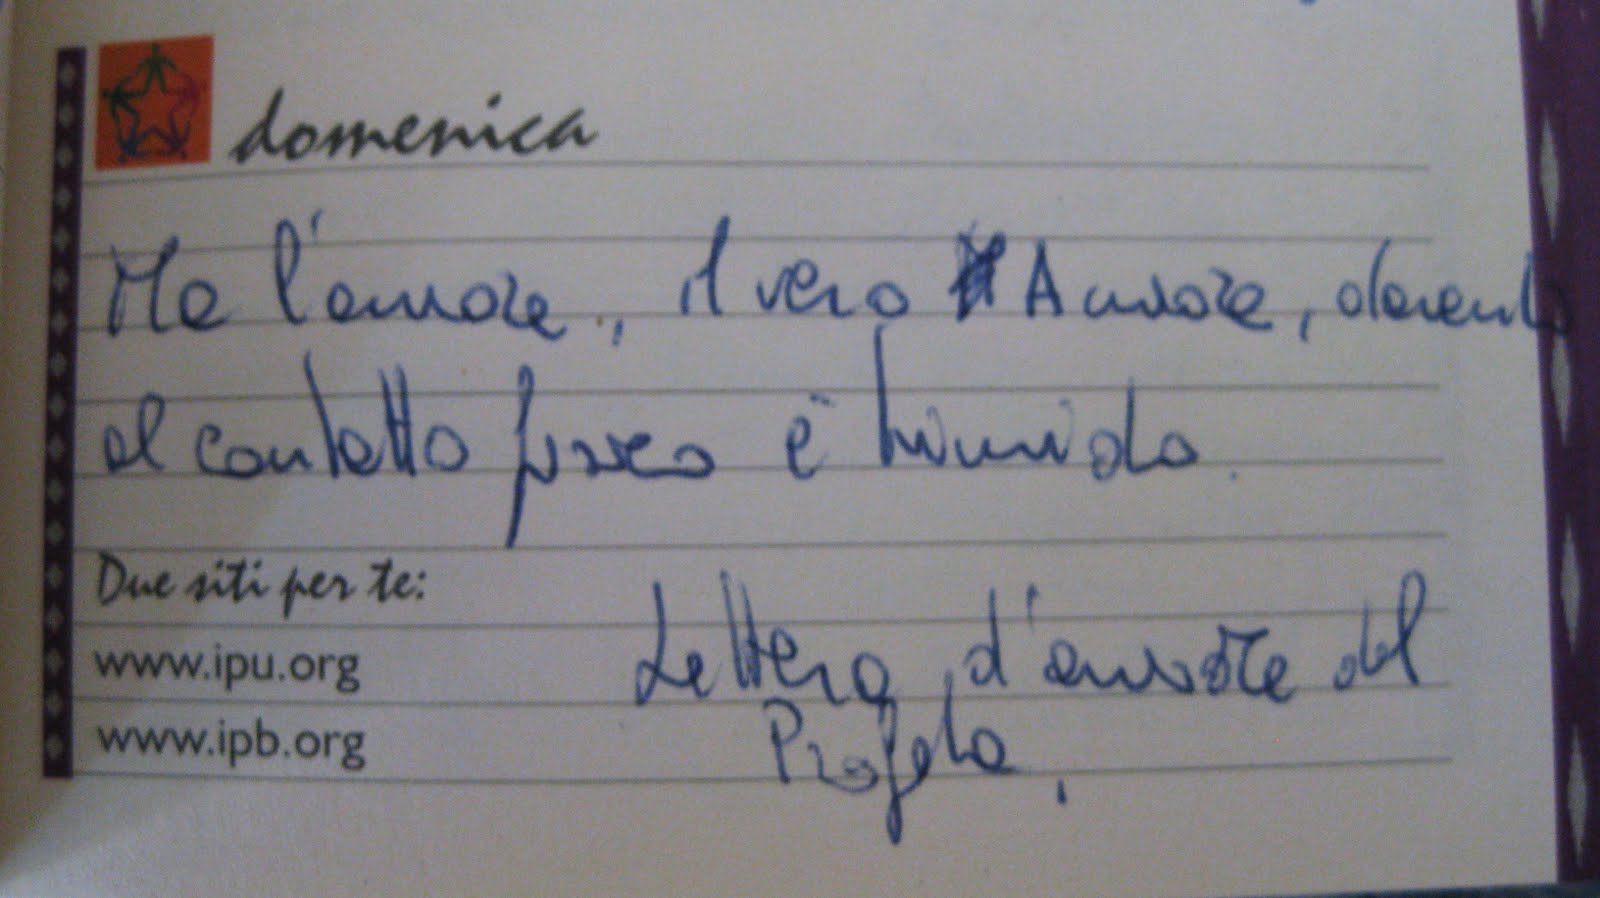 domenica
Ma l'amore, il vero Amore, davanti
al contatto fisico è timido.
Due siti per te:
www.ipu.org
www.ipb.org
Lettera d'amore del
Profeta,